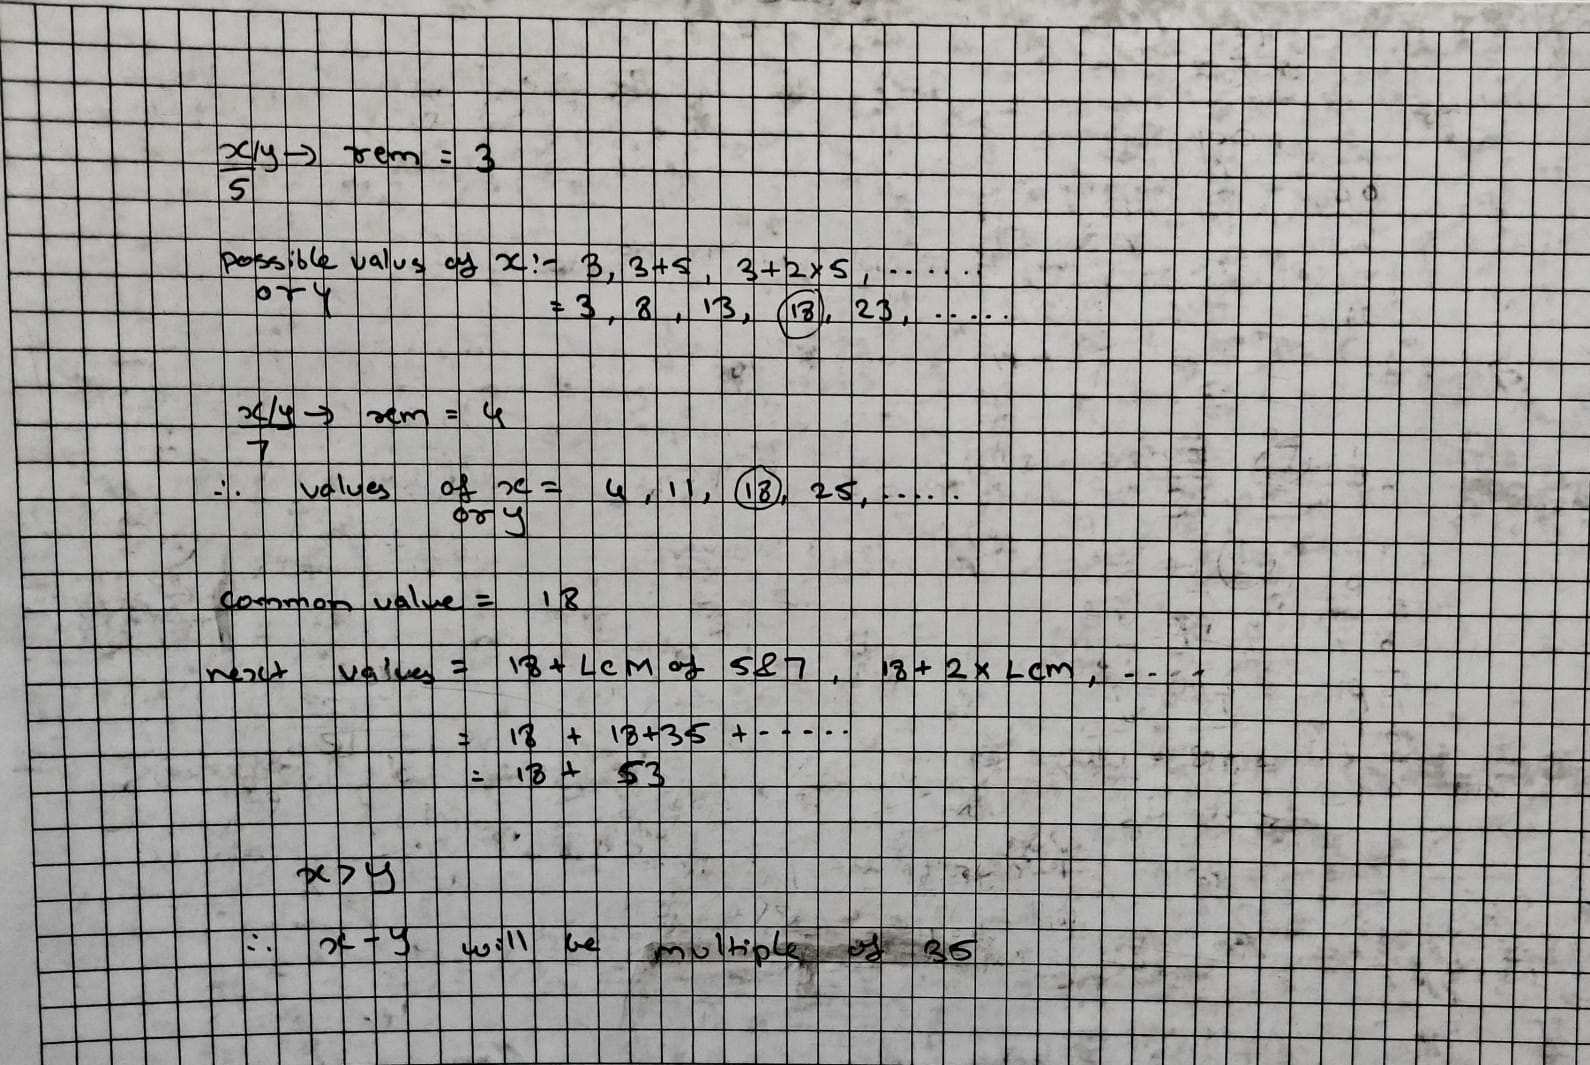 x/y → rem = 3
5
possible valus of x:- 3, 3+5, 3+2×5, ......
or y
= 3, 8, 13, 18, 23, .....
x/y → rem = 4
7
∴ values of x = 4, 11, 18, 25, .....
or y
common value = 18
next values = 18 + LCM of 5&7, 18 + 2 × LCM, ----
= 18 + 18+35 + ------
= 18 + 53
x > y
∴ x - y will be multiple of 35